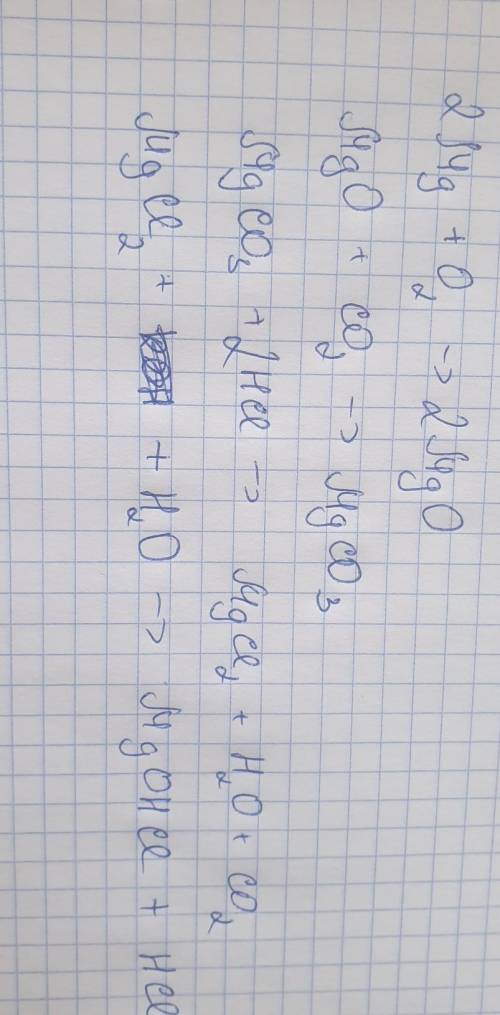 2Mg + O₂ -> 2MgO
MgO + CO₂ -> MgCO₃
MgCO₃ + 2HCl -> MgCl₂ + H₂O + CO₂
MgCl₂ + + H₂O -> MgOHCl + HCl